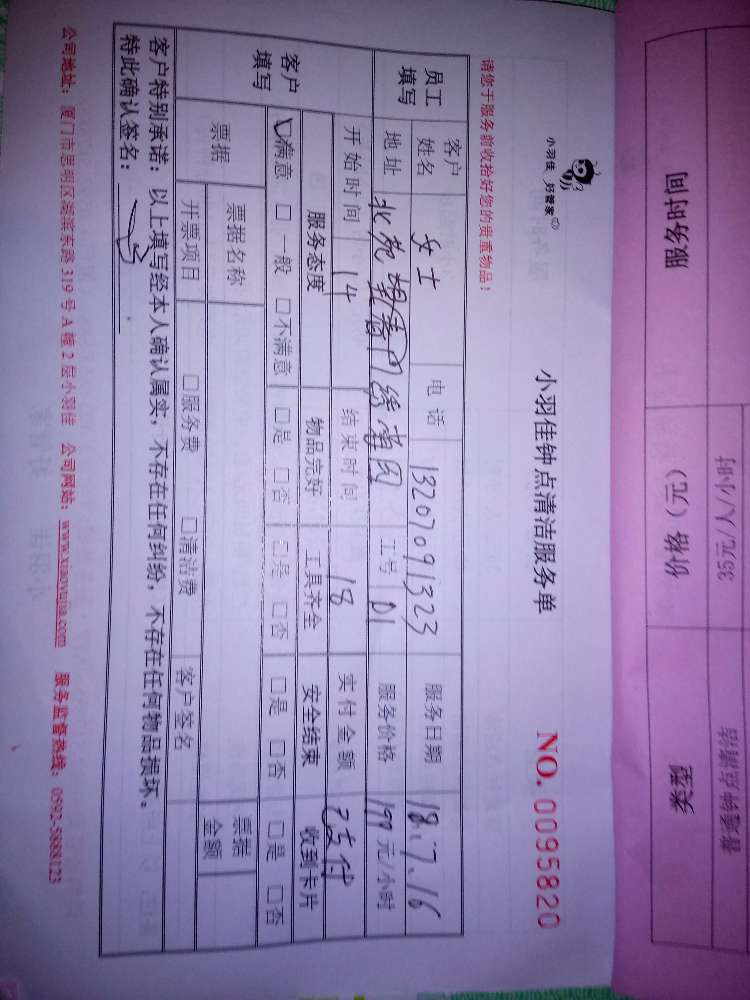 服务时间 价格（元） 类型
35元/人/小时 普通钟点清洁
小羽佳 好管家
小羽佳钟点清洁服务单 NO. 0095820
请您于服务前收拾好您的贵重物品！
员工填写 客户姓名 女士 电话 13207091323 服务日期 18.7.16
地址 北苑 工号 D1 服务价格 199 元/小时
客户填写 开始时间 14 结束时间 18 实付金额 已支付
服务态度 物品完好 工具齐全 安全结束 收到卡片
☑满意 □一般 □不满意 □是 □否 □是 □否 □是 □否 □是 □否
票据 票据名称 票据金额
开票项目 □服务费 □清洁费 客户签名
客户特别承诺：以上填写经本人确认属实，不存在任何纠纷，不存在任何物品损坏。
特此确认签名：
公司地址：厦门市思明区湖滨东路 319 号 A 幢 2 层小羽佳 公司网站：www.xiaoyujia.com 服务监督热线：0592-5888123